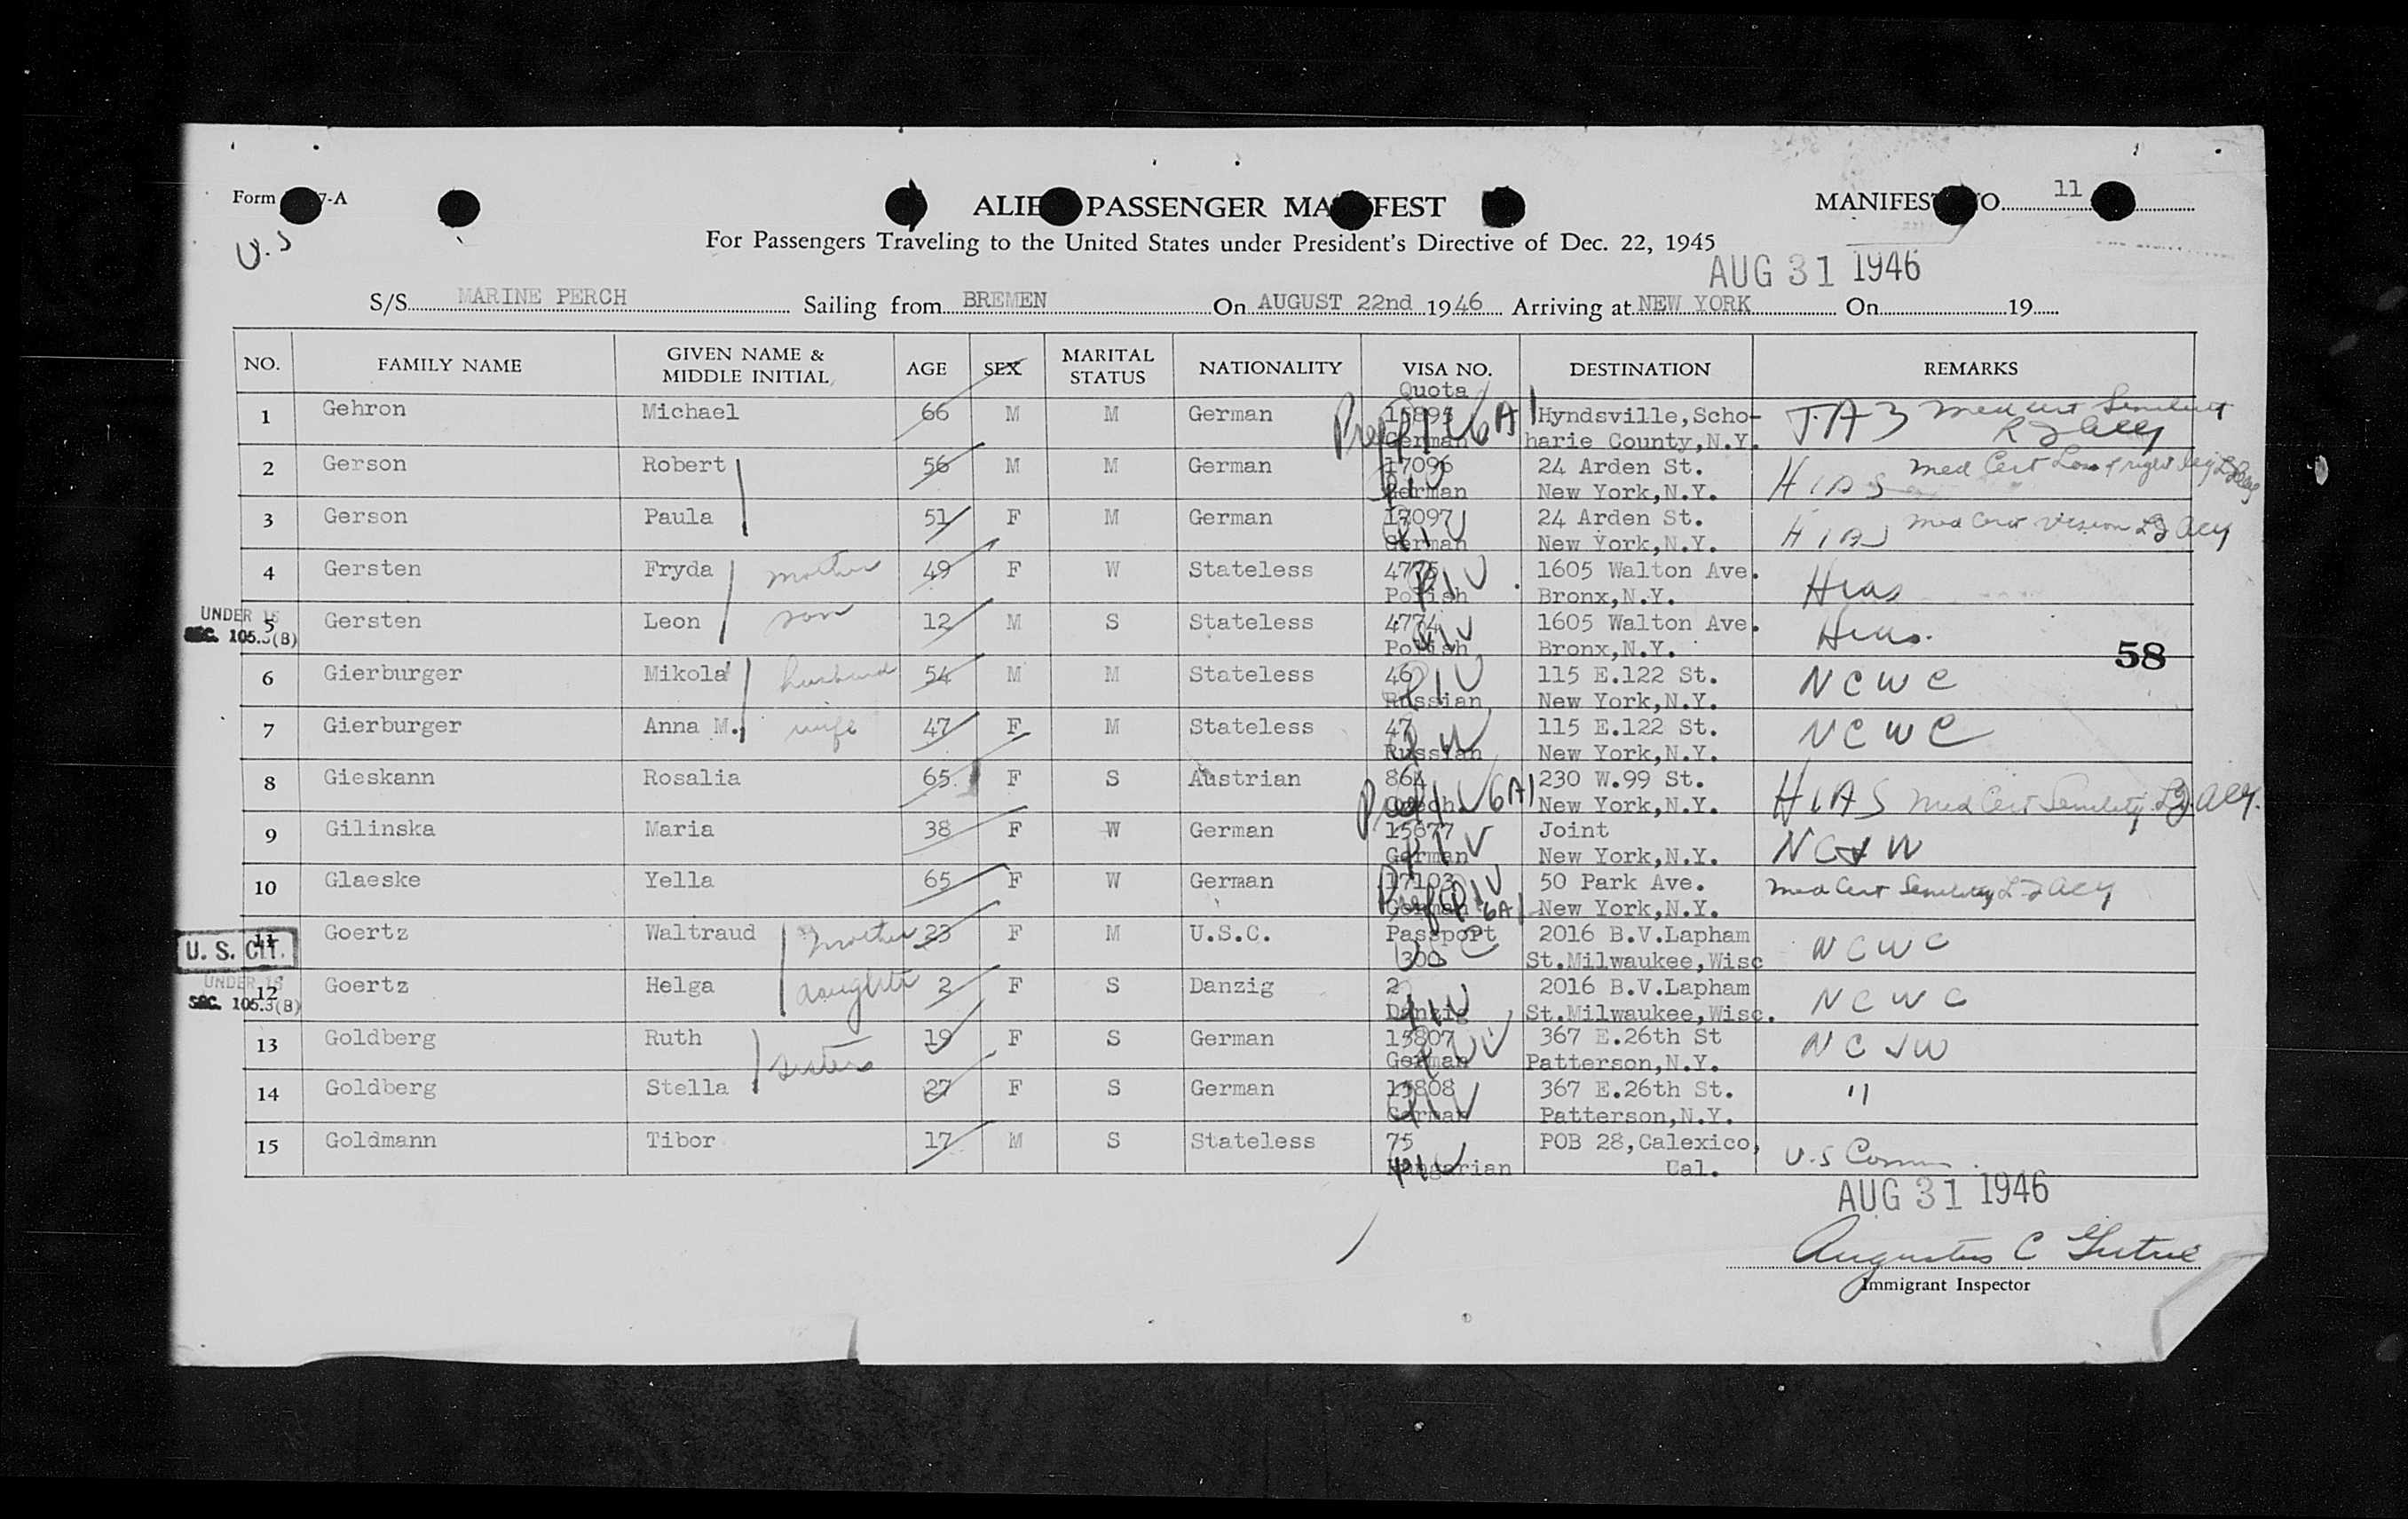 Form 7-A
ALIEN PASSENGER MANIFEST
MANIFEST NO. 11
U.S
For Passengers Traveling to the United States under President's Directive of Dec. 22, 1945
AUG 31 1946
S/S MARINE PERCH Sailing from BREMEN On AUGUST 22nd 1946 Arriving at NEW YORK On 19
NO. FAMILY NAME GIVEN NAME & MIDDLE INITIAL AGE SEX MARITAL STATUS NATIONALITY VISA NO. DESTINATION REMARKS
Quota
1 Gehron Michael 66 M M German Hyndsville,Scho-
German harie County,N.Y.
2 Gerson Robert 56 M M German 17096 24 Arden St. HIAS Med Cert Loss of right leg
German New York,N.Y.
3 Gerson Paula 51 F M German 17097 24 Arden St. HIAS Med Cert vision
German New York,N.Y.
4 Gersten Fryda mother 49 F W Stateless 4775 1605 Walton Ave. Hias
Polish Bronx,N.Y.
UNDER 16
SEC. 105.3(B)
5 Gersten Leon son 12 M S Stateless 4774 1605 Walton Ave. Hias.
Polish Bronx,N.Y.
58
6 Gierburger Mikola husband 54 M M Stateless 46 115 E.122 St. NCWC
Russian New York,N.Y.
7 Gierburger Anna M. wife 47 F M Stateless 47 115 E.122 St. NCWC
Russian New York,N.Y.
8 Gieskann Rosalia 65 F S Austrian 864 230 W.99 St. HIAS Med Cert Senility
Czech. New York,N.Y.
9 Gilinska Maria 38 F W German 15677 Joint NCJW
German New York,N.Y.
10 Glaeske Yella 65 F W German 17103 50 Park Ave. Med Cert Senility
German New York,N.Y.
U. S. CIT.
11 Goertz Waltraud mother 23 F M U.S.C. Passport 2016 B.V.Lapham NCWC
300 St.Milwaukee,Wisc
UNDER 16
SEC. 105.3(B)
12 Goertz Helga daughter 2 F S Danzig 2 2016 B.V.Lapham NCWC
Danzig St.Milwaukee,Wisc.
13 Goldberg Ruth 19 F S German 15807 367 E.26th St NCJW
sisters
German Patterson,N.Y.
14 Goldberg Stella 27 F S German 15808 367 E.26th St. "
German Patterson,N.Y.
15 Goldmann Tibor 17 M S Stateless 75 POB 28,Calexico, U.S Comm.
Hungarian Cal.
AUG 31 1946
Augustus C
Immigrant Inspector